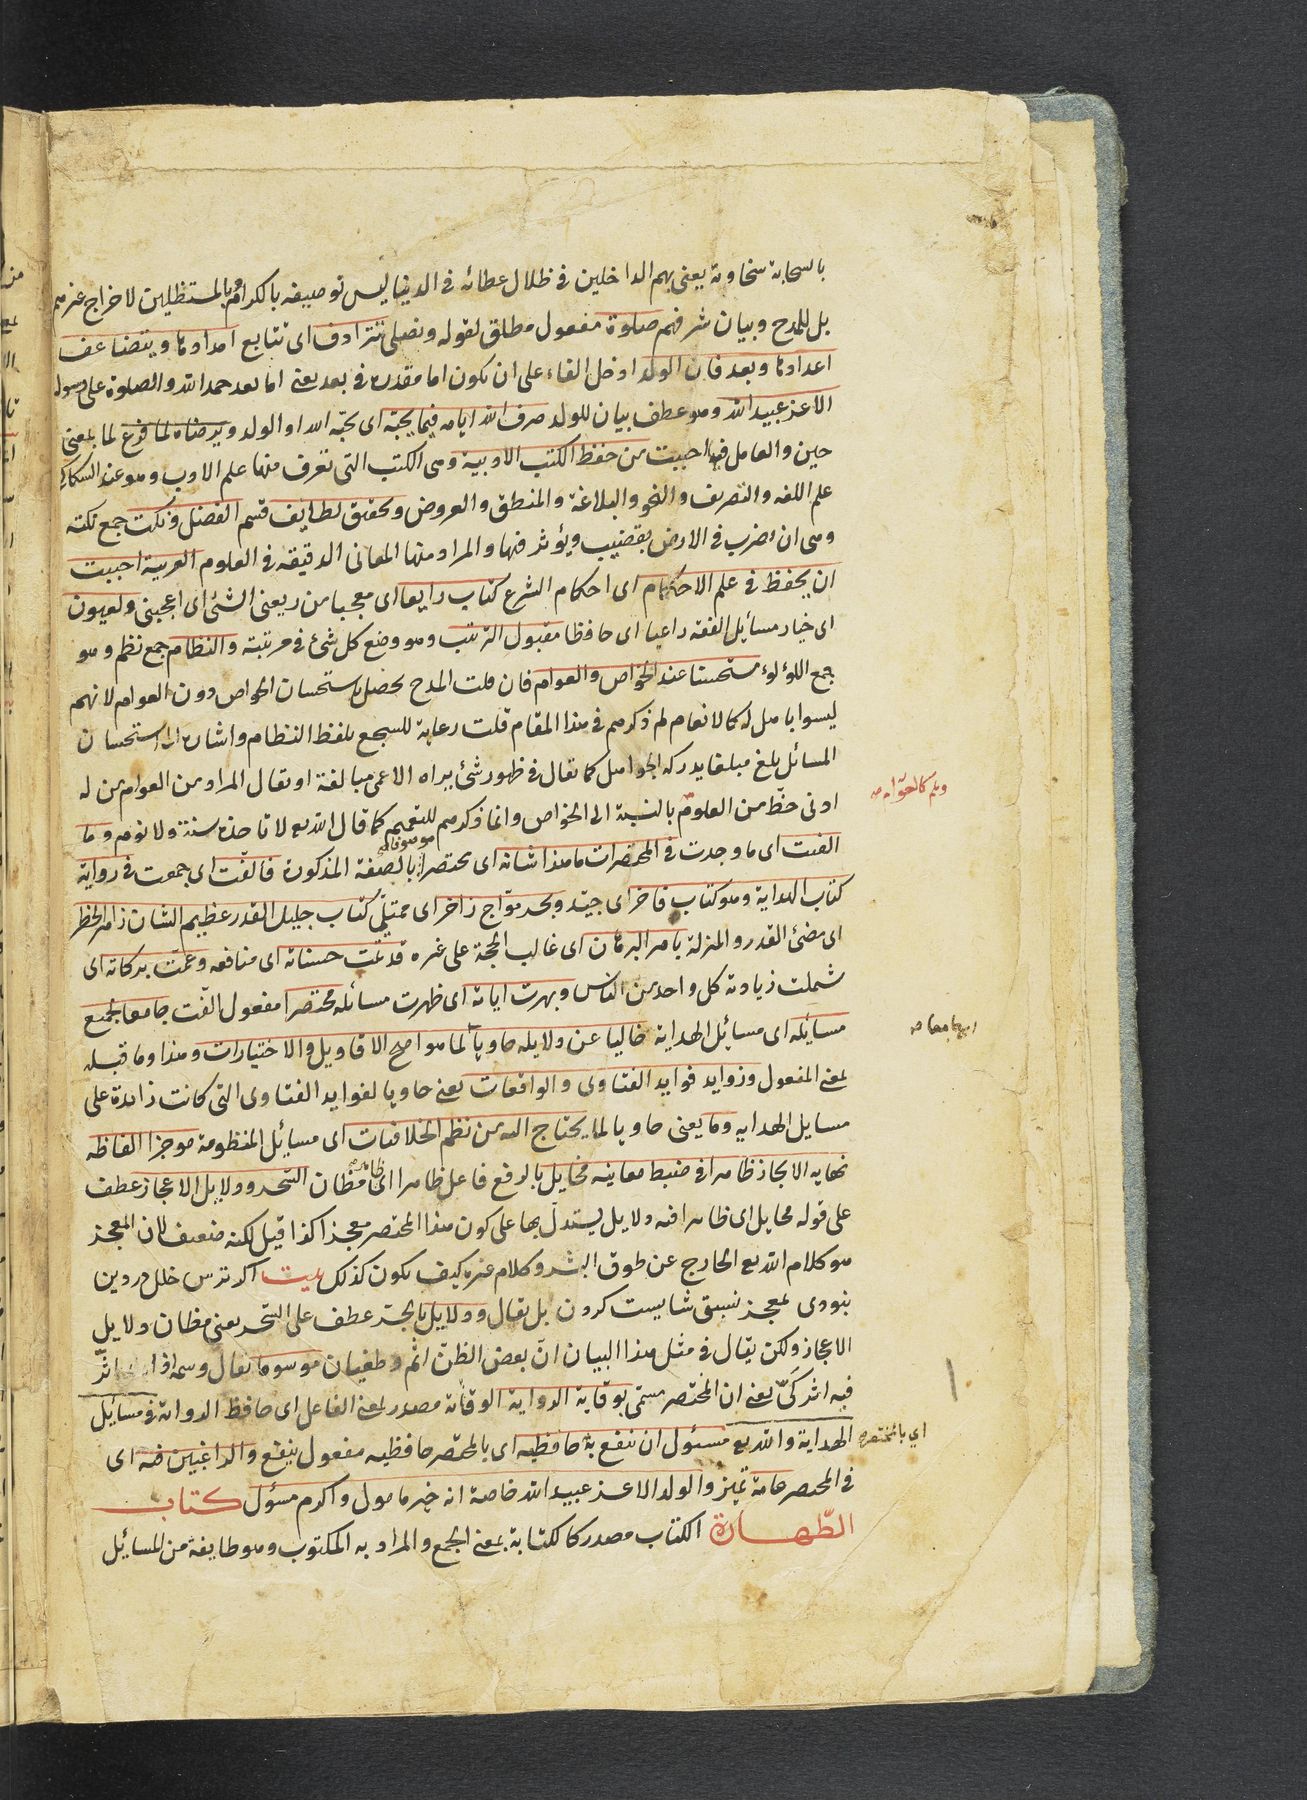 بالسحابة سخاوته يعنى بهم الداخلين فى ظلال عطائه فى الدنيا ليس توصيفه بالكرام والمستظلين لاخراج غيرهم
بل للمدح وبيان شرفهم صلوة مفعول مطلق لقوله ونصلى تترادف اى تتابع امدادها ويتضاعف
اعدادها وبعد فان الولد ادخل الفاء على ان يكون اما مقدرة فى بعد يعنى اما بعد حمد الله والصلوة على رسوله
الاعز عبيد الله وهو عطف بيان للولد صرف الله ايامه فيما يحبه اى يحبه الله او الولد ويرضاه لما فرغ لما بمعنى
حين والعامل فيه احببت من حفظ الكتب الادبية وهى الكتب التى تعرف منها علم الادب وهو عند السكاكى
علم اللغه والتصريف والنحو والبلاغة والمنطق والعروض وتحقيق لطايف قسم الفضل ونكت جمع نكته
وهى ان تضرب فى الارض بقضيب ويؤثر فيها والمراد منها المعانى الدقيقه فى العلوم العربية احببت
ان يحفظ فى علم الاحكام اى احكام الشرع كتاب رايعا اى معجبا من ريعنى الشئ اى اعجبنى ولعيون
اى خيار مسائل الفقه راعيا اى حافظا مقبول الترتيب وهو وضع كل شئ فى مرتبته والنظام جمع نظم وهو
جمع اللؤلؤ مستحسنا عند الخواص والعوام فان قلت المدح يحصل باستحسان الخواص دون العوام لانهم
ليسوا باهل له كالانعام لم ذكرهم فى هذا المقام قلت رعاية للسجع بلفظ النظام واشارة الى استحسان
المسائل بلغ مبلغا يدركه الجواهل كما يقال فى ظهور شئ يراه الاعمى مبالغة او يقال المراد من العوام من له
ادنى حظ من العلوم بالنسبة الى الخواص وانما ذكرهم للتعميم كما قال الله تع لا تاخذه سنة ولا نوم وما
الفيت اى ما وجدت فى المختصرات ما هذا شانه اى مختصرا موصوفا بالصفة المذكورة فالفت اى جمعت فى رواية
كتاب الهداية وهو كتاب فاخر اى جيد وبحر مواج زاخر اى ممتلى كتاب جليل القدر عظيم الشان زاهر الخطر
اى مضئ القدر والمنزلة باهر البرهان اى غالب الحجة على غيره قد تمت حسناته اى منافعه وعمت بركاته اى
شملت زيادته كل واحد من الناس وبهرت اياته اى ظهرت مسائله مختصرا مفعول الفت جامعا لجميع
مسائله اى مسائل الهداية خاليا عن دلايله حاويا لما هو اصح الاقاويل والاختيارات وهذا وما قبله
لمعنى المفعول وزوايد فوايد الفتاوى والواقعات يعنى حاويا لفوايد الفتاوى التى كانت زائدة على
مسايل الهدايه وما يعنى حاويا لما يحتاج اليه من نظم الخلافيات اى مسائل المنظومة موجزا الفاظه
نهاية الايجاز ظاهرا فى ضبط معانيه مخايل بالرفع فاعل ظاهرا اى مظان السحر ودلايل الاعجاز عطف
على قوله مخايل اى ظاهرا فيه دلايل يستدل بها على كون هذا المختصر معجزا كذا قيل لكنه ضعيف لان المعجز
هو كلام الله تع الخارج عن طوق البشر وكلام غيره كيف يكون كذلك بيت اكر ترس خلل در دين
نبودى بمعجز نسبتى شايست كردن بل يقال ودلايل بالجر عطف على السحر يعنى مظان دلايل
الاعجاز ولكن يقال فى مثل هذا البيان ان بعض الظن اثم وطغيان موسوما يقال وسمه اذا اثر
فيه اثر كى يعنى ان المختصر مسمى بوقاية الرواية الوقاية مصدر لمعنى الفاعل اى حافظ الرواية فى مسائل
الهداية والله تع مسئول ان ينفع به حافظيه اى بالمختصر حافظيه مفعول ينفع والراغبين فيه اى
فى المختصر عامة تميز والولد الاعز عبيد الله خاصة انه خير مامول واكرم مسؤل كتاب
الطهارة الكتاب مصدر كالكتابة بمعنى الجمع والمراد به المكتوب وهو طايفة من المسائل
اى بالمختصر